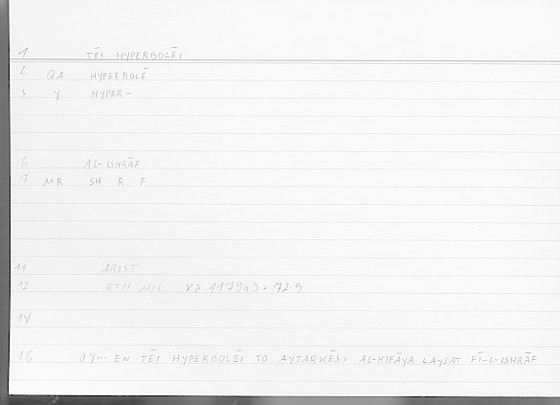 1 TĒI HYPERBOLĒI
2 QA HYPERBOLĒ
3 Y HYPER-
6 AL-ISHRĀF
7 MR SH R F
11 ARIST
12 ETH NIC X9 1179a3 = 72.9
14
16 OY... EN TĒI HYPERBOLĒI TO AYTARKES= AL-KIFĀYA LAYSAT FĪ-L-ISHRĀF